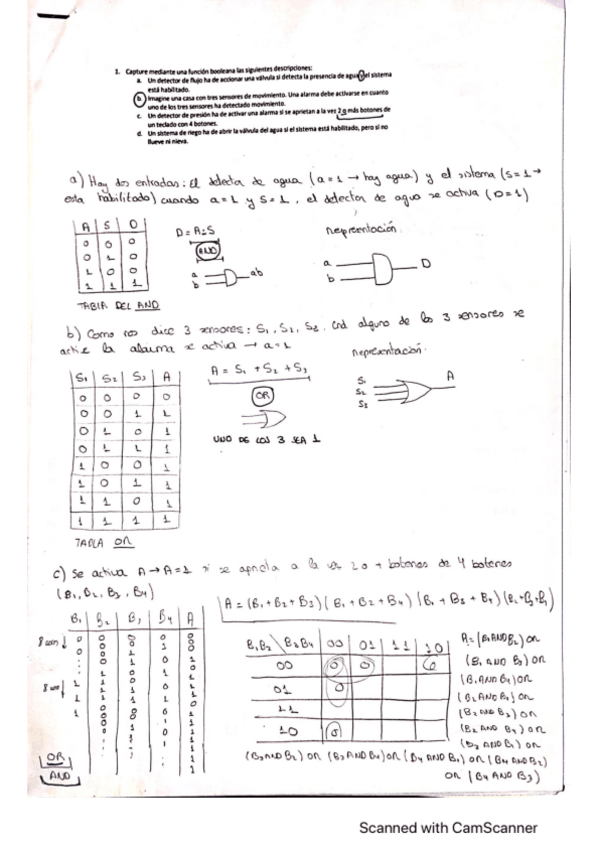 1. Capture mediante una función booleana las siguientes descripciones:
a. Un detector de flujo ha de accionar una válvula si detecta la presencia de agua y el sistema
está habilitado.
b. Imagine una casa con tres sensores de movimiento. Una alarma debe activarse en cuanto
uno de los tres sensores ha detectado movimiento.
c. Un detector de presión ha de activar una alarma si se aprietan a la vez 2 o más botones de
un teclado con 4 botones.
d. Un sistema de riego ha de abrir la válvula del agua si el sistema está habilitado, pero si no
llueve ni nieva.
a) Hay dos entradas: El detecta de agua (a = 1 → hay agua) y el sistema (S = 1 →
esta habilitado) cuando a = 1 y S = 1, el detector de agua se activa (D = 1)
A S D
0 0 0
0 1 0
1 0 0
1 1 1
TABLA DEL AND
D = A·S
AND
a
b
ab
representación
a
b
D
b) Como nos dice 3 sensores: S1, S2, S2. Cnd alguno de los 3 sensores se
active la alarma se activa → a = 1
S1 S2 S3 A
0 0 0 0
0 0 1 1
0 1 0 1
0 1 1 1
1 0 0 1
1 0 1 1
1 1 0 1
1 1 1 1
TABLA OR
A = S1 + S2 + S3
OR
UNO DE LOS 3 SEA 1
representación
S1
S2
S3
A
c) Se activa A → A = 1 si se aprieta a la vez 2 o + botones de 4 botones
(B1, B2, B3, B4)
A = (B1 + B2 + B3) (B1 + B2 + B4) (B1 + B3 + B4) (B2 + B3 + B4)
B1 B2 B3 B4 A
B1B2 \ B3B4 00 01 11 10
00 0 0 0
01 0
11
10 0
A = (B1 AND B2) OR
(B1 AND B3) OR
(B1 AND B4) OR
(B2 AND B1) OR
(B2 AND B3) OR
(B2 AND B4) OR
(B3 AND B1) OR
(B3 AND B2) OR (B3 AND B4) OR (B4 AND B1) OR (B4 AND B2)
OR (B4 AND B3)
OR
AND
Scanned with CamScanner